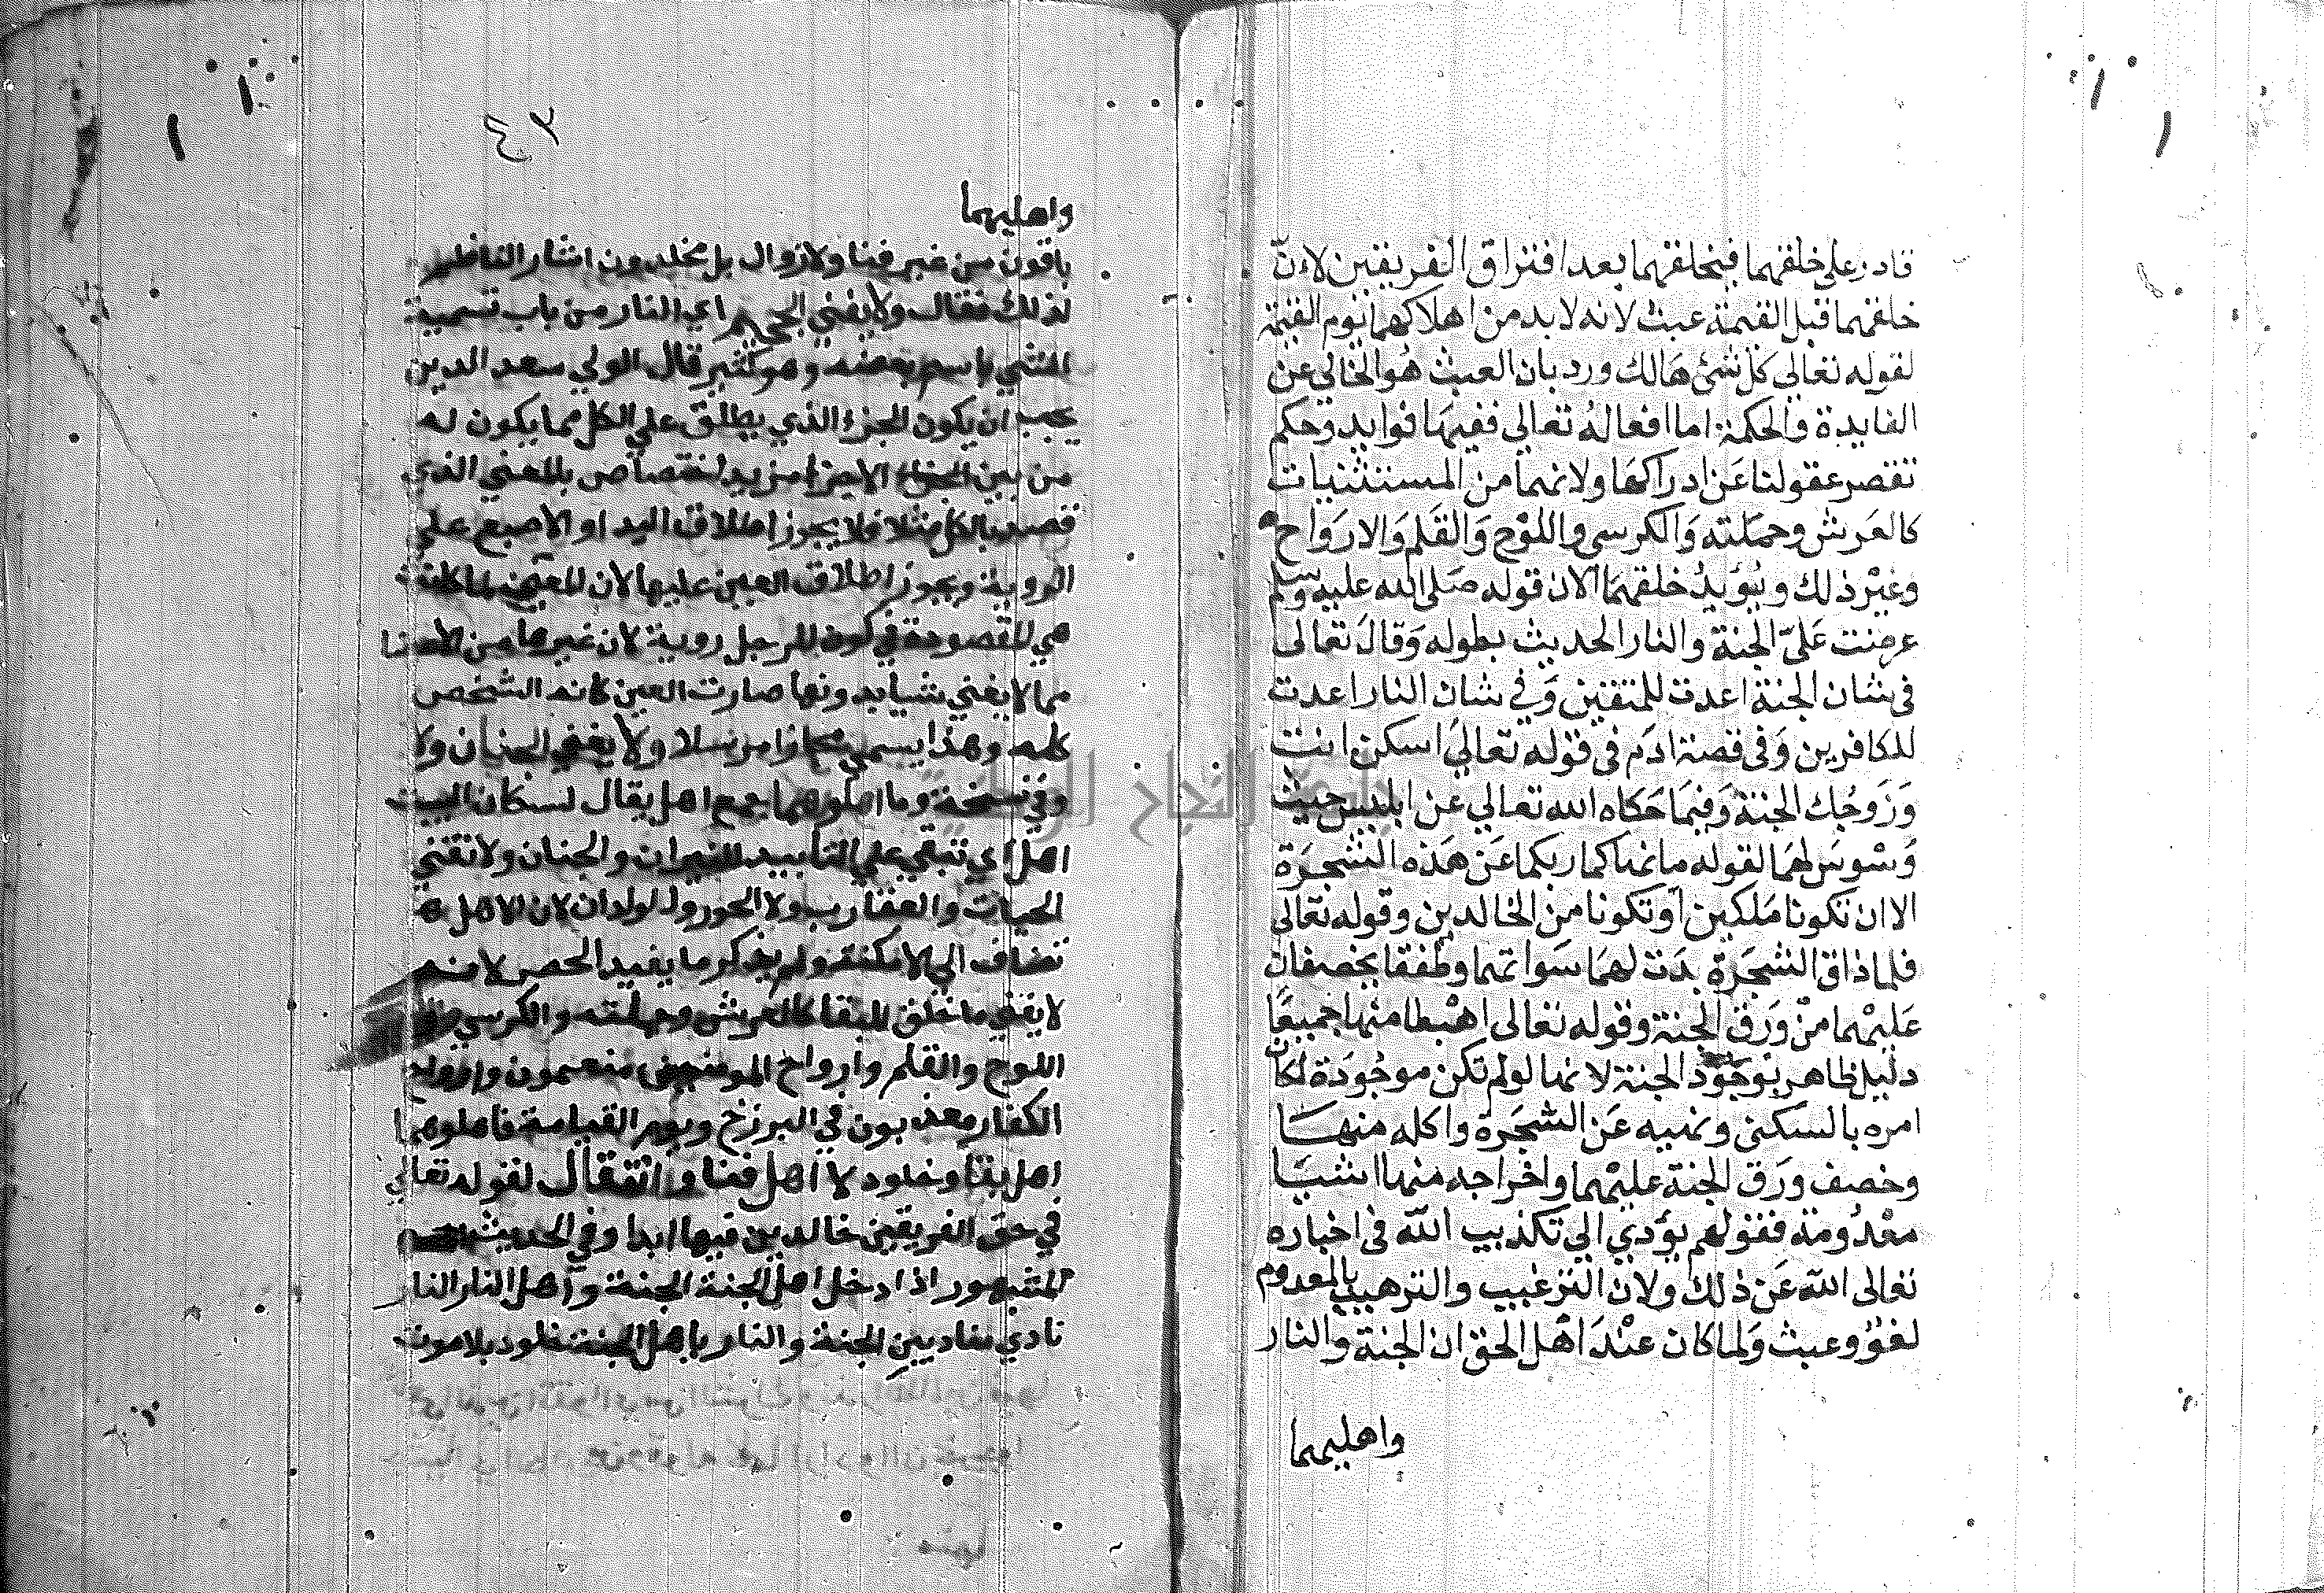 قادر على خلقهما فيخلقهما بعد افتراق الفريقين لان
خلقهما قبل القيمة عبث لانه لا بد من اهلاكهما يوم القيمة
لقوله تعالي كل شئ هالك ورد بان العبث هو الخالي عن
الفايدة والحكمة اما افعاله تعالي ففيها فوايد وحكم
تقصر عقولنا عن ادراكها ولانهما من المستثنيات
كالعرش وحملته والكرسى واللوح والقلم والارواح
وغير ذلك ويؤيد خلقهما الان قوله صلى الله عليه وسلم
عرضت علىّ الجنة والنار الحديث بطوله وقال تعالى
فى شان الجنة اعدت للمتقين وفي شان النار اعدت
للكافرين وفى قصة ادم فى قوله تعالي اسكن انت
وزوجك الجنة وفيما حكاه الله تعالي عن ابليس حيث
وسوس لهما لقوله ما نهاكما ربكما عن هذه الشجرة
الا ان تكونا ملكين او تكونا من الخالدين وقوله تعالى
فلما ذاقا الشجرة بدت لهما سواتهما وطفقا يخصفان
عليهما من ورق الجنة وقوله تعالى اهبطا منها جميعًا
دليل ظاهر بوجود الجنة لانها لو لم تكن موجودة لكان
امره بالسكنى ونهيه عن الشجرة واكله منها
وخصف ورق الجنة عليهما واخراجه منها اشيا
معدومة فقولهم يؤدي الي تكذيب الله فى اخباره
تعالى الله عن ذلك ولان الترغيب والترهيب بالمعدوم
لغو وعبث ولما كان عند اهل الحق ان الجنة والنار
واهليهما
٤٣
واهليهما
باقون من غير فنا ولا زوال بل مخلدون اشار الناظم
لذلك فقال ولا يفني الجحيم اي النار من باب تسمية
الشي باسم بعضه وهو كثير قال الولي سعد الدين
يجب ان يكون الجزء الذي يطلق علي الكل مما يكون له
من بين الاجزا مزيد اختصاص بالمعني الذي
قصد بالكل مثلا فلا يجوز اطلاق اليد او الاصبع علي
الروية ويجوز اطلاق العين عليها لان العين لما كانت
هي المقصودة في كون الرجل روية لان غيرها من الاعضا
مما لا يغني شيا بدونها صارت العين كانه الشخص
كله وهذا يسمي مجازا مرسلا ولا يفني الجنان ولا
وفي نسخة وما اهلوهما جمع اهل يقال لسكان البيت
اهل اي تبقي علي التابيد النيران والجنان ولا تفني
الحيات والعقارب ولا الحور ولا الولدان لان الاهل
تضاف الي الامكنة ولم يذكر ما يفيد الحصر لانه
لا يفني ما خلق للبقا كالعرش وحملته والكرسي
اللوح والقلم وارواح المومنين منعمون وارواح
الكفار معذبون في البرزخ ويوم القيامة فاهلوهما
اهل بقا وخلود لا اهل فنا وانتقال لقوله تعالي
في حق الفريقين خالدين فيها ابدا وفي الحديث
المشهور اذا دخل اهل الجنة الجنة واهل النار النار
نادي مناد بين الجنة والنار يا اهل الجنة خلود بلا موت